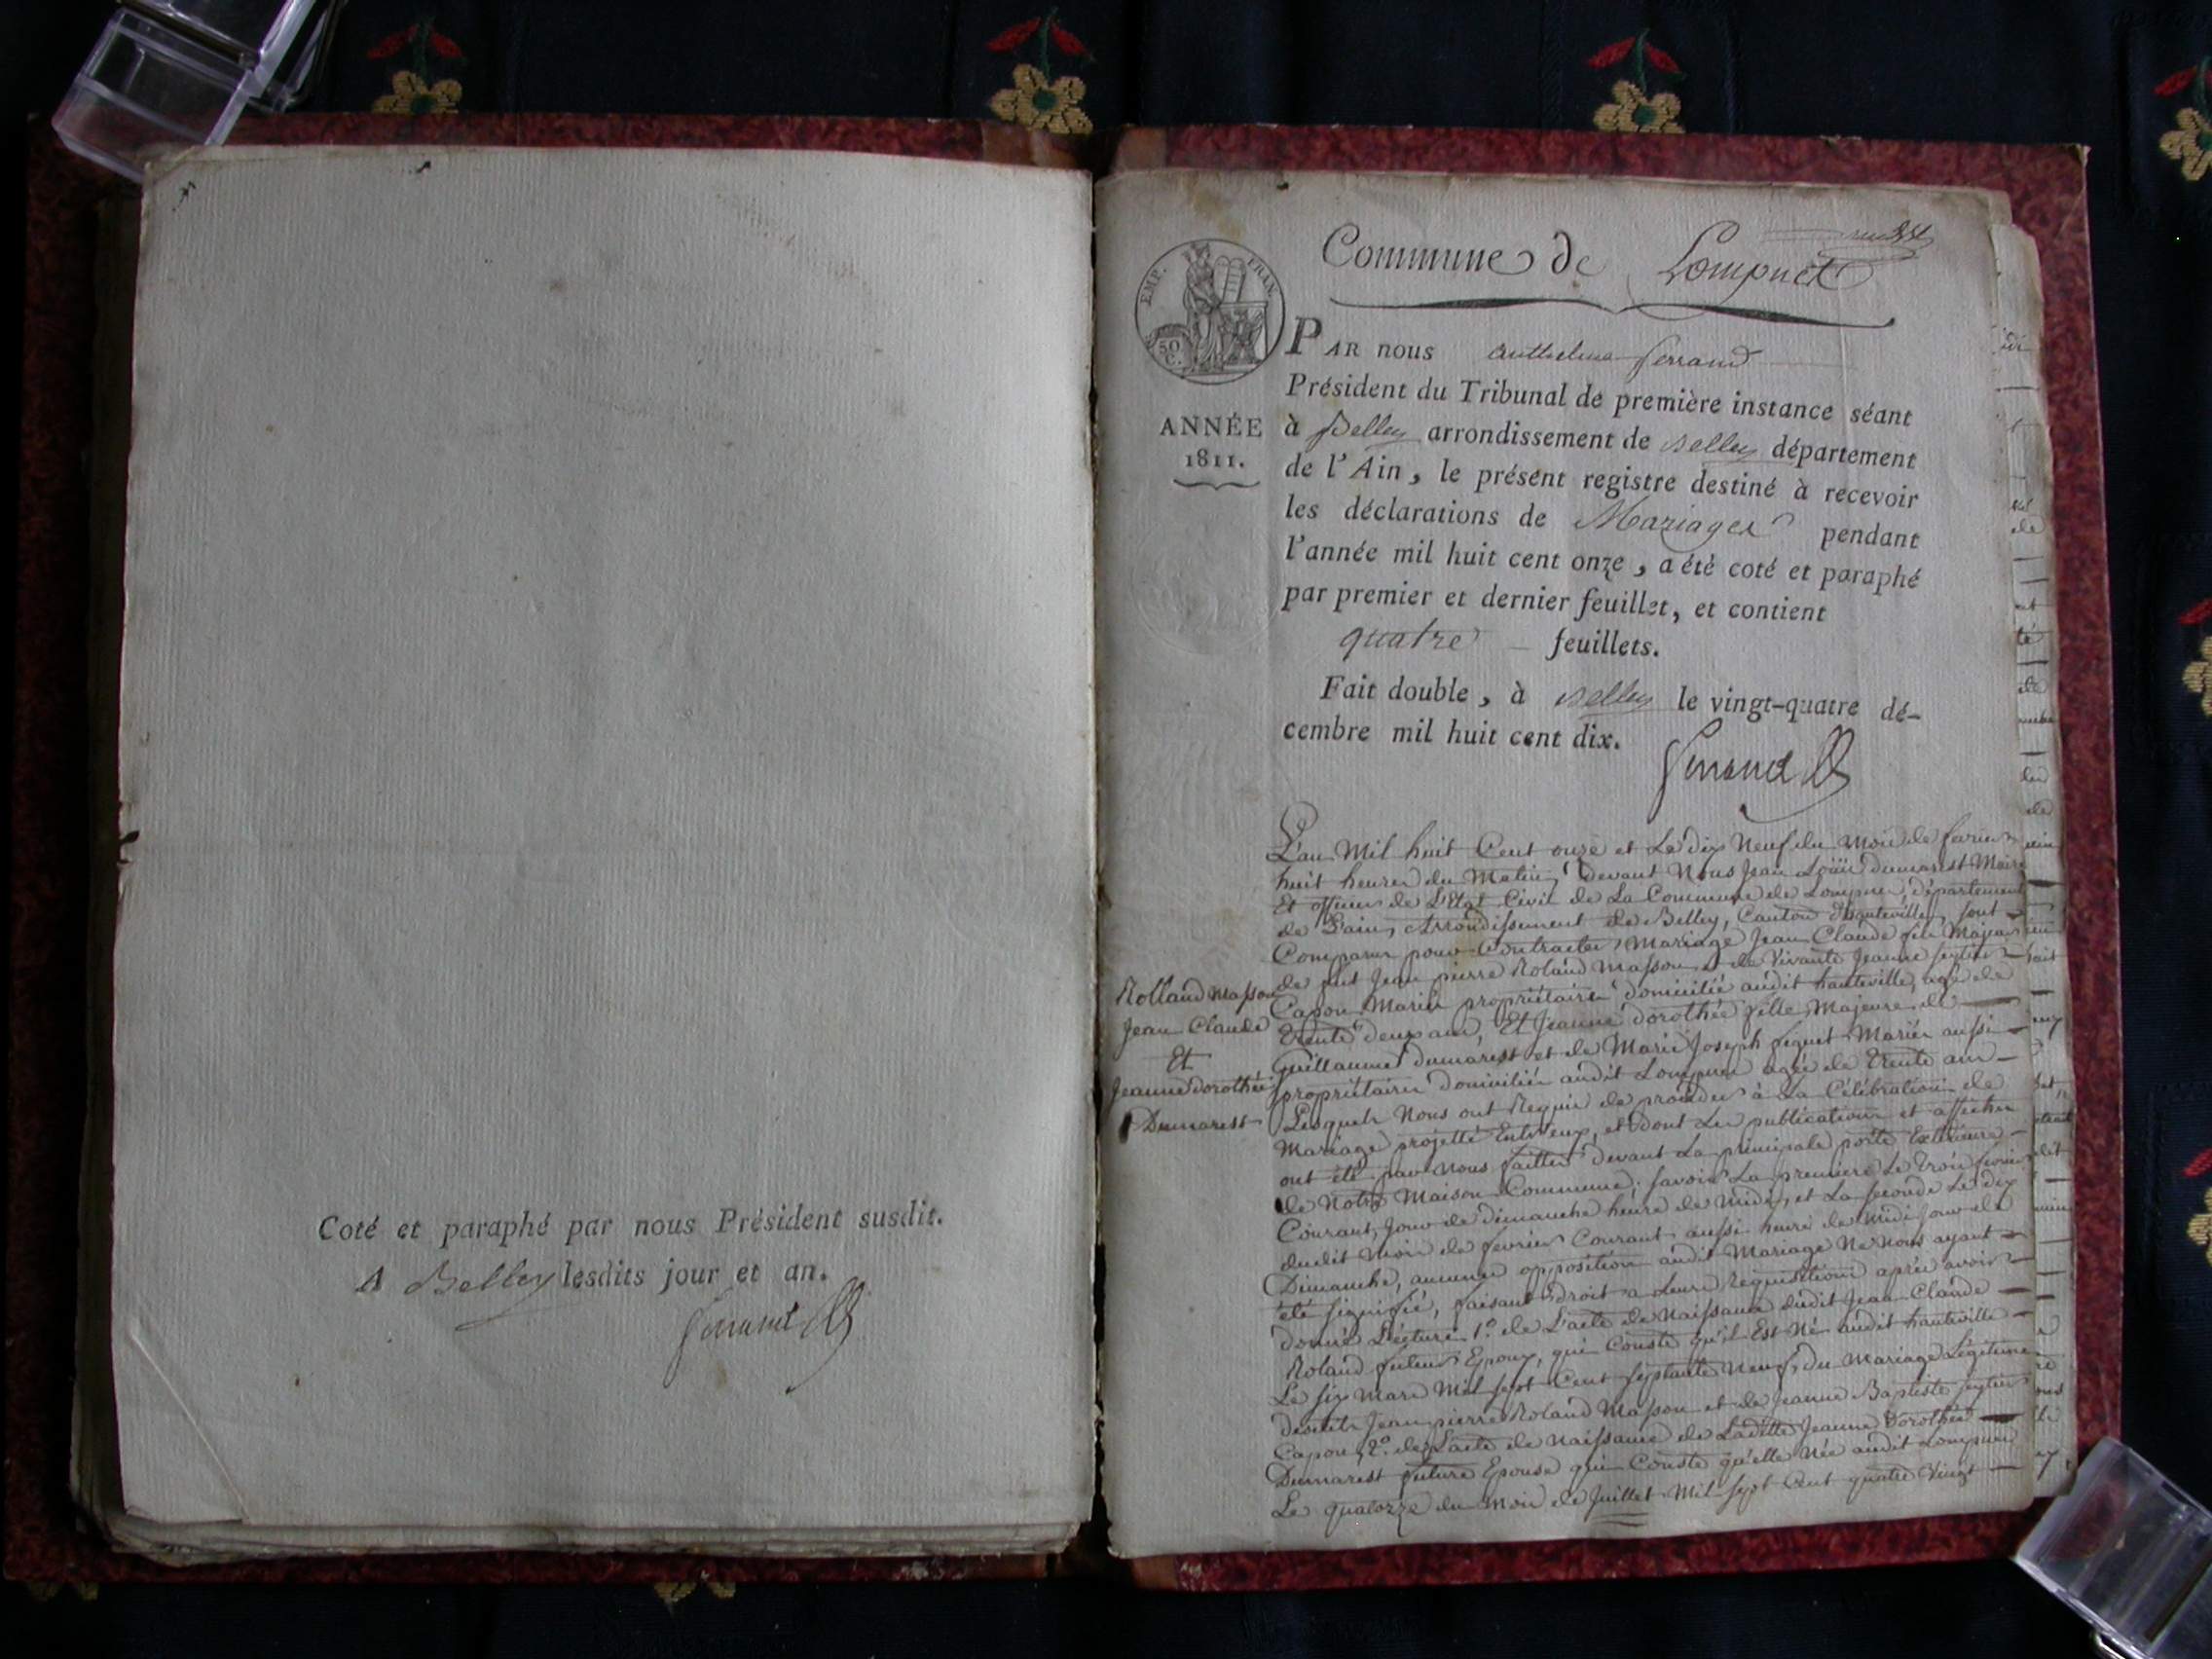 Coté et paraphé par nous Président susdit.
A Belley lesdits jour et an.
Ferrand
Commune de Lompnes
EMP. FRAN.
50 C.
ANNÉE
1811.
PAR nous Anthelme Ferrand
Président du Tribunal de première instance séant
à Belley arrondissement de Belley département
de l'Ain, le présent registre destiné à recevoir
les déclarations de Mariages pendant
l'année mil huit cent onze, a été coté et paraphé
par premier et dernier feuillet, et contient
quatre feuillets.
Fait double, à Belley le vingt-quatre dé-
cembre mil huit cent dix.
Ferrand
Rolland Masson
Jean Claude
Et
Jeanne Dorothée
Dumarest
L'an Mil huit Cent onze et Le dix Neuf du Mois de fevrier
huit heures du Matin, devant Nous Jean Loüis Dumarest Maire
Et officier de L'Etat Civil de La Commune de Lompnes, département
de L'ain, Arrondissement de Belley, Canton d'hauteville, sont
Comparus pour Contracter Mariage Jean Claude fils Majeur
de fut Jean pierre Roland Masson et de Vivante Jeanne
Capon Mariés propriétaires domiciliés audit hauteville, agé de
trente deux ans, Et Jeanne dorothée fille Majeure de
Guillaume Dumarest et de Marie Joseph Mariés aussi
propriétaires domiciliés audit Lompnes agée de trente ans
Lesquels Nous ont Requis de procéder à La Célébration de
Mariage projetté Entr'eux, et dont Les publications et affiches
ont été par nous faittes devant La principale porte Extérieure
de Notre Maison Commune; savoir La premiere Le trois fevrier
Courant, Jour de dimanche heure de midi, et La seconde Le dix
dudit mois de fevrier Courant aussi heure de midi Jour de
Dimanche, aucune opposition audit Mariage Ne Nous ayant
été signifié, faisant droit a Leure Requisition après avoir
donné Lecture 1.º de L'acte de Naissance dudit Jean Claude
Roland futur Epoux, qui Conste qu'il Est Né audit hauteville
Le six Mars Mil sept Cent septante Neuf, du Mariage Légitime
desdits Jean pierre Roland Masson et de Jeanne Baptiste
Capon, 2.º de L'acte de naissance de Laditte Jeanne Dorothée
Dumarest future Epouse qui Conste qu'elle Née audit Lompnes
Le quatorze du Mois de Juillet Mil sept Cent quatre Vingt